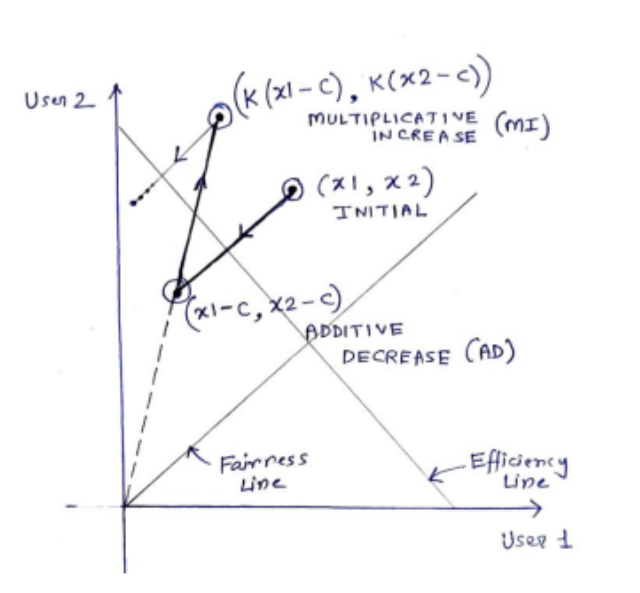 User 2
(K(x1-c), K(x2-c))
MULTIPLICATIVE
INCREASE (MI)
(x1, x2)
INITIAL
(x1-c, x2-c)
ADDITIVE
DECREASE (AD)
Fairness
Line
Efficiency
Line
User 1